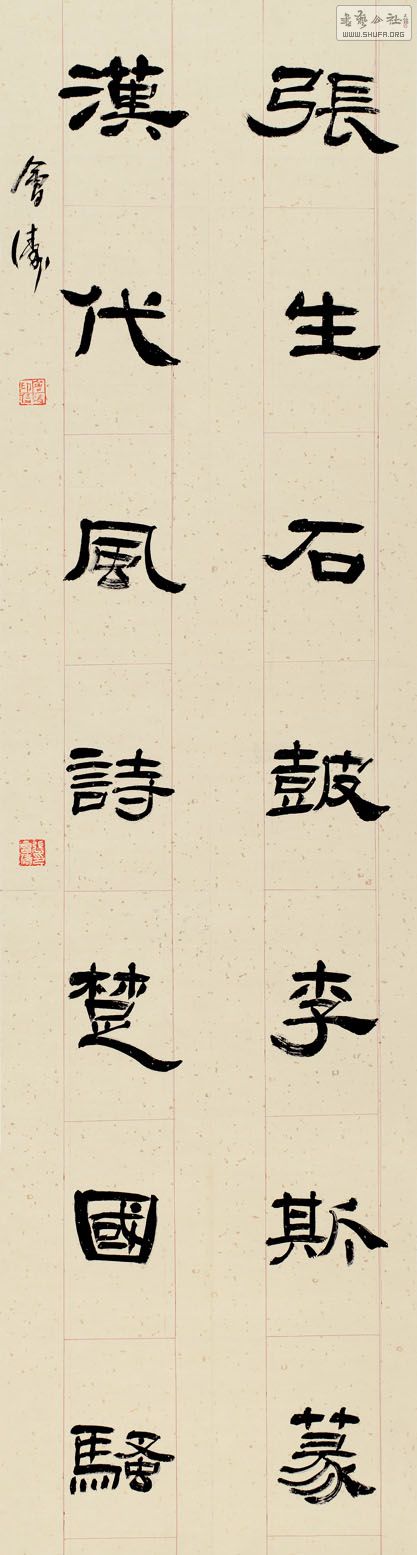 張生石鼓李斯篆
漢代風詩楚國騷
會濤
書藝公社
WWW.SHUFA.ORG